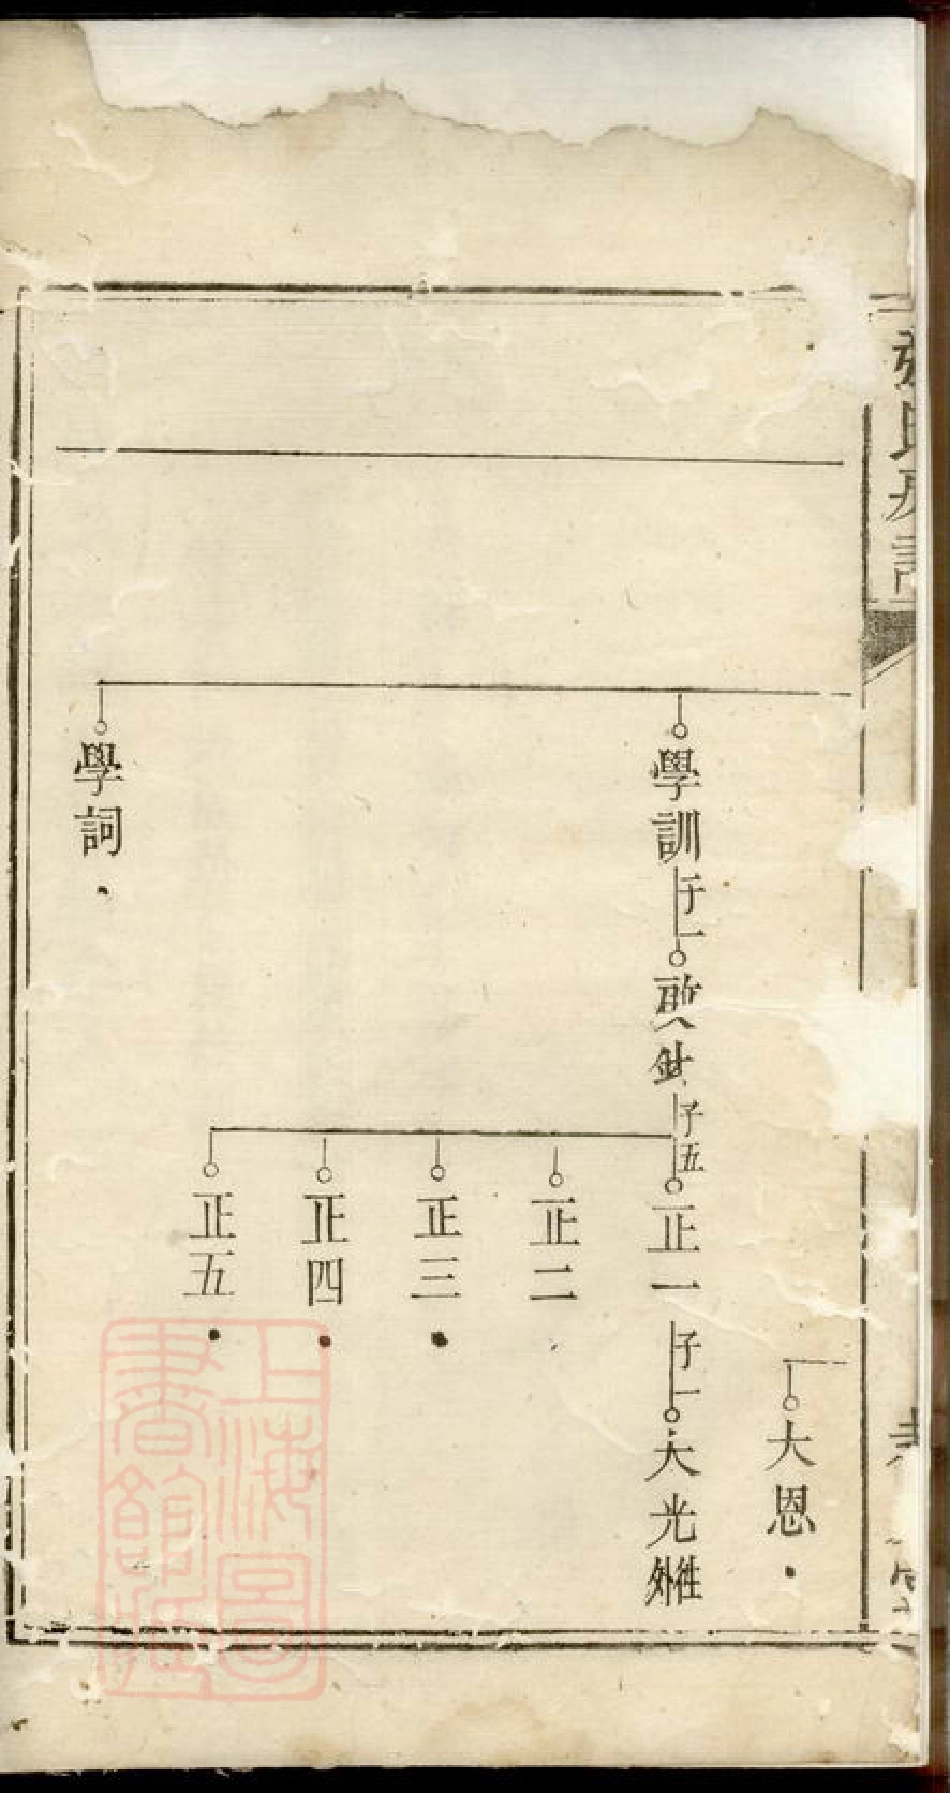 大恩
學訓 子一 啟針 子五 正一 子一 大光 往外
正二
正三
正四
正五
學詞
上海圖書館藏